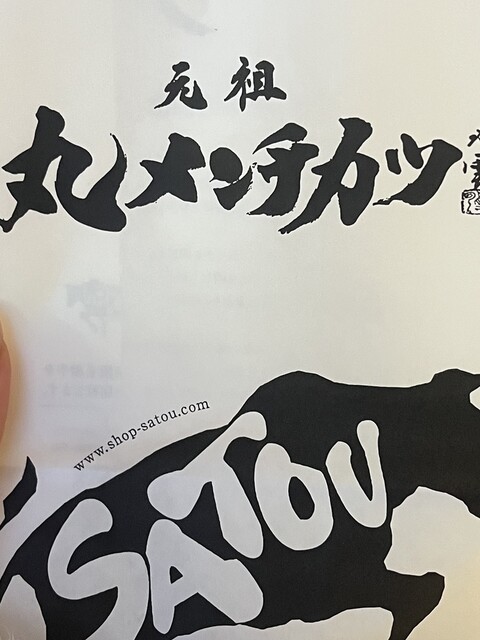 元祖
丸メンチカツ
www.shop-satou.com
SATOU